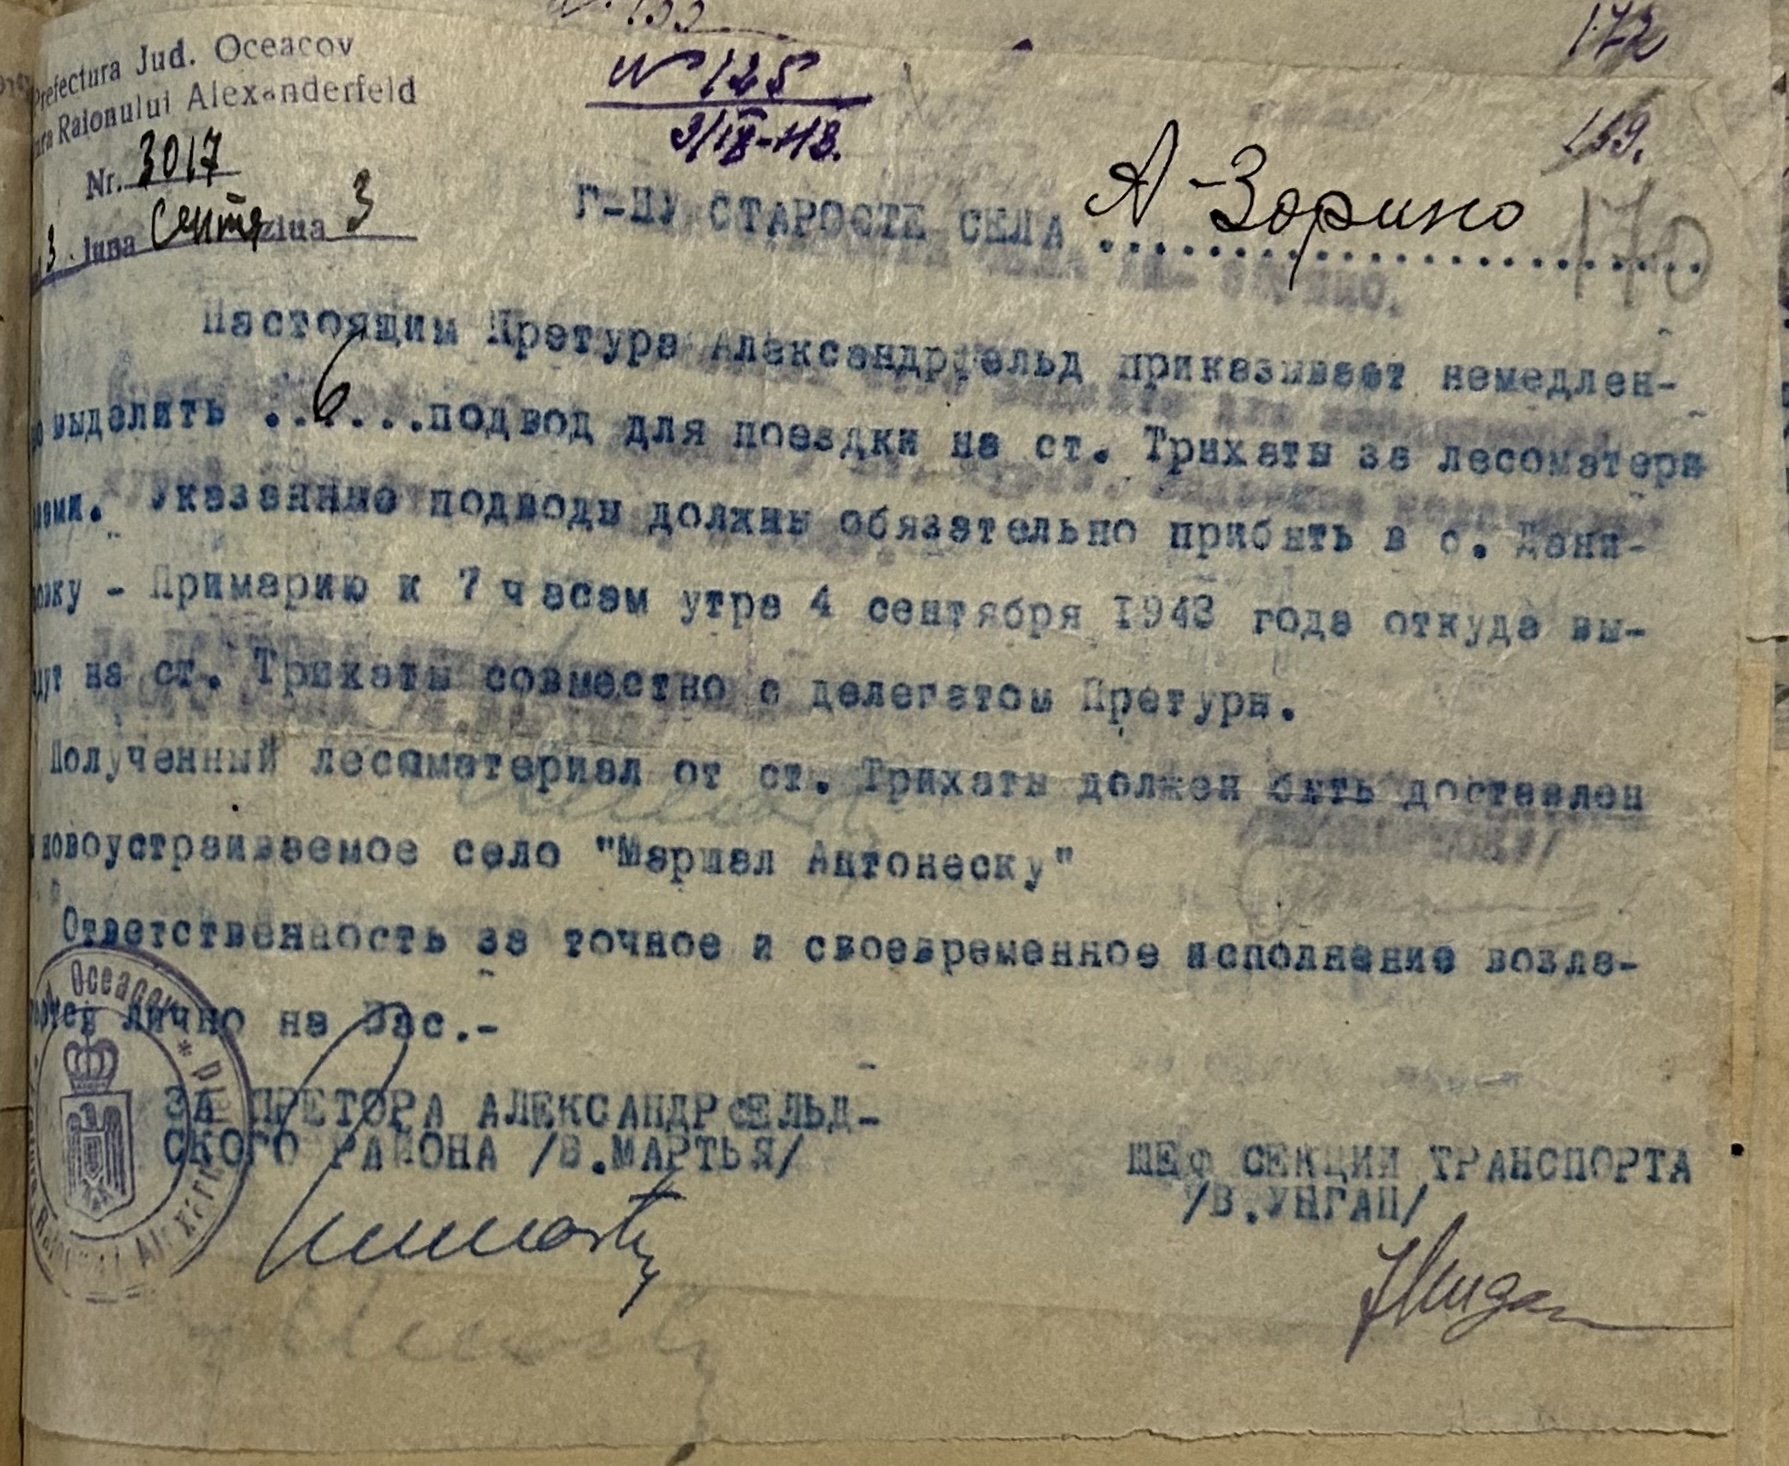 Prefectura Jud. Oceacov
Raionului Alexanderfeld
Nr. 3017
3. luna Септя ziua 3
№ 125
3/IX-43.
172
159.
170
Г-НУ СТАРОСТЕ СЕЛА А-Зорино
Настоящим Претура Александрфельд приказывает немедлен-
но выделить ..6...подвод для поездки на ст. Трихаты за лесоматери
алами. Указанные подводы должны обязательно прибыть в с. Дани-
ловку - Примарию к 7 часам утра 4 сентября 1943 года откуда вы-
едут на ст. Трихаты совместно с делегатом Претуры.
Полученный лесоматериал от ст. Трихаты должен быть доставлен
новоустраиваемое село "Маршал Антонеску"
Ответственность за точное и своевременное исполнение возла-
гается лично на Вас.-
ЗА ПРЕТОРА АЛЕКСАНДРФЕЛЬД-
СКОГО РАЙОНА /В.МАРТЬЯ/
ШЕФ СЕКЦИИ ТРАНСПОРТА
/В.УНГАН/
Oceacov